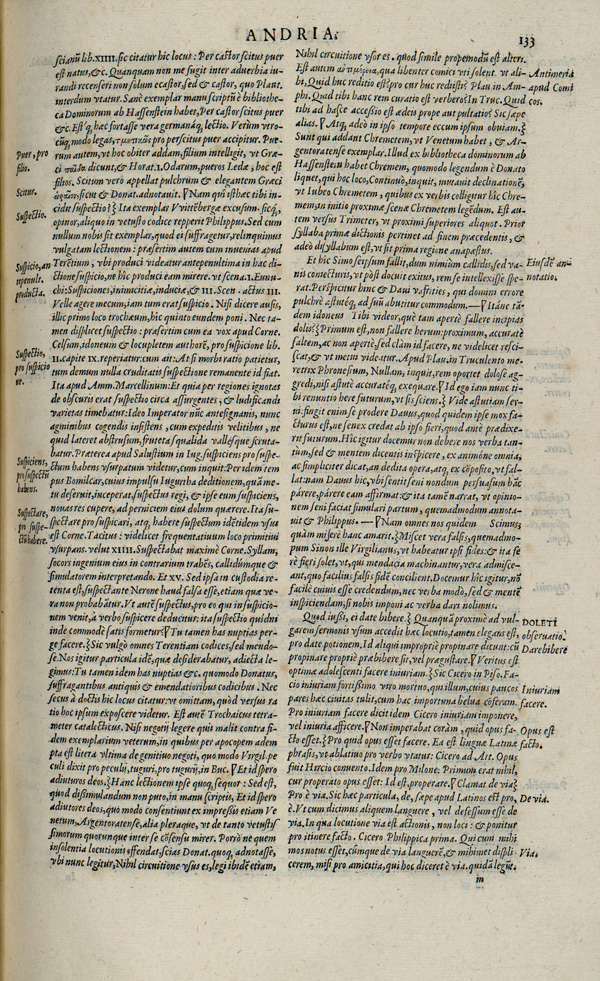 ANDRIA.
133
scianū lib. XIIII. sic citatur hic locus: Per castor scitus puer
est natus, &c. Quanquam non me fugit inter aduerbia iu-
randi recenseri non solum ecastor, sed & castor, quo Plaut.
interdum vtatur. Sanè exemplar manuscriptū è bibliothe-
ca Dominorum ab Hassenstein habet, Per castor scitus puer
&c. Est'q́; hæc fortasse vera germanaq́; lectio. Verùm vtro-
puer accipitur. Pue-
rum autem, vt hoc obiter addam, filium intelligit, vt Græ-
ci dicunt, & Horat. 1. Odarum, pueros Ledæ, hoc est
filios. Scitum verò appellat pulchrum & elegantem Græci
scit & Donat. adnotauit. ¶ Nam quæ isthæc tibi in-
cidit suspectio?§ Ita exemplar Vuittebergæ excusum. sicq́;,
opinor, aliquo in vetusto codice repperit Philippus. Sed cum
nullum nobis sit exemplar, quod ei suffragetur, relinquimus
vulgatam lectionem: præsertim autem cum inuenias apud
Terētium, vbi produci videatur antepenultima in hac di-
ctione suspicio, ne hic produci eam mirere. vt scena. 1. Eunu-
chi: Suspiciones, inimicitiæ, induciæ, & III. Scen. actus III.
Velle agere mecum, iam tum erat suspicio. Nisi dicere ausis,
illic primo loco trochæum, hic quinto eundem poni. Nec ta-
men displicet suspectio: præsertim cum ea vox apud Corne.
Celsum, idoneum & locupletem authorē, pro suspicione lib.
II. capite IX. reperiatur, cum ait: At si morbi ratio patietur,
tum demum nulla cruditatis suspectione remanente id fiat.
Ita apud Amm. Marcellinum: Et quia per regiones ignotas
de obscuris erat suspectio circa assurgentes, & ludificandi
varietas timebatur: Ideo Imperator nūc antesignanis, nunc
agminibus cogendis insistens, cum expeditis velitibus, ne
quid lateret abstrusum, fruteta squalida vallesque scruta-
batur. Præterea apud Salustium in Iug. suspiciens pro suspe-
ctum habens vsurpatum videtur, cum inquit: Per idem tem
pus Bomilcar, cuius impulsu Iugurtha deditionem, quā me-
tu deseruit, inceperat, suspectus regi, & ipse eum suspiciens,
nouas res cupere, ad perniciem eius dolum quærere. Ita su-
spectare pro suspicari, atq́; habere suspectum idētidem vsus
est Cor. Tacitus: videlicet frequentatiuum loco primitiui
vsurpans. velut XIIII. Suspectabat maximè Corne. Syllam,
socors ingenium eius in contrarium trahēs, callidumque &
simulatorem interpretando. Et XV. Sed ipsa in custodia re-
tenta est, suspectante Nerone haud falsa esse, etiam quæ ve-
ra non probabātur. Vt autē suspectus, pro eo qui in suspicio-
nem venit, à verbo suspicere deducitur: ita suspectio quidni
inde commodè satis formetur? ¶ Tu tamen has nuptias per-
ge facere.§ Sic vulgò omnes Terentiam codices, sed mendo-
sè. Nos igitur particula idē, quæ desiderabatur, adiecta le-
gimus: Tu tamen idem has nuptias &c. quomodo Donatus,
suffragantibus antiquis & emendatioribus codicibus. Nec
secus à doctis hic locus citatur: vt omittam, quòd versus ra
tio hoc ipsum exposcere videtur. Est autē Trochaicus tetra-
meter catalecticus. Nisi negotij legere quis malit contra fi-
dem exemplarium veterum, in quibus per apocopen adem
pta est litera vltima de genitiuo negoti, quo modo Virgil. pe
culi dixit pro peculij, tuguri, pro tugurij, in Buc. ¶ Et id spero
adiuturos deos.§ Hanc lectionem ipse quoq́; sequor: Sed est,
quod dissimulandum non puto, in manuscriptis, Et id spero
adiutores deos, quo modo consentiunt ex impressis etiam Ve-
netum, Argentoratense, alia pleraque, vt de tanto vetustis
simorum quorunque inter se cōsensu mirer. Porrò ne quem
insolentia locutionis offendat, scias Donat. quoq́; adnotasse,
vbi nunc legitur, Nihil circuitione vsus es, legi ibidē etiam,
Puer, pro
filio.
Scitus.
Suspectio.
Suspicio, an
tepenult.
producta.
Suspectio,
pro suspicio
ne.
Suspiciens,
pro suspectū
habens.
Suspectare,
pro suspe-
ctū habere.
Nihil circuitione vsor es. quod simile propemodū est alteri.
Est autem qua libenter comici vti solent. vt ali-
bi, Quid huc reditio est? pro cur huc redistis? Plau in Am-
phi. Quid tibi hanc rem curatio est verbero? In Truc. Quid
tibi ad hasce accessio est ædeis prope aut pultatio? Sic sæpe
alias. ¶ Atq́; adeò in ipso tempore eccum ipsum obuiam.§
Sunt qui addant Chremetem, vt Venetum habet, & Ar-
gentoratense exemplar. Illud ex bibliotheca dominorum ab
Hassenstein habet Chremem, quomodo legendum è Donato
liquet, qui hoc loco, Continuò, inquit, mutauit declinationē,
vt Iubeo Chremetem, quibus ex verbis colligitur hîc Chre-
mem, in initio proximæ scenæ Chremetem legēdum. Est au-
tem versus Trimeter, vt proximi superiores aliquot. Prior
syllaba primæ dictionis pertinet ad finem præcedentis, &
adeò dissyllabum est, vt sit prima regione anapæstus.
Et hîc Simo seipsum fallit, dum nimium callidus, sed va-
nis coniecturis, vt pòst docet exitus, rem se intellexisse spe-
rat. Perspicitur hîc & Daui vafrities, qui domini errore
pulchrè astutéq́; ad suū abutitur commodum.— ¶ Itáne tā-
dem idoneus Tibi videor, quē tam apertè fallere incipias
dolis?§ Primum est, non fallere herum: proximum, accuratè
saltem, ac non apertè, sed clam id facere, ne videlicet resci-
scat, & vt metui videatur. Apud Plau. in Truculento me-
retrix Phronesium, Nullam, inquit, rem oportet dolosè ag-
gredi, nisi astutè accuratéq́; exequare. ¶ Id ego iam nunc ti-
bi renuntio here futurum, vt sis sciens.§ Vide astutiam ser-
ui: fingit enim se prodere Dauus, quod quidem ipse mox fa-
cturus est, ne senex credat ab ipso fieri, quod antè prædixe-
rit futurum. Hîc igitur docemur non debere nos verba tan-
tùm, sed & mentem dicentis inspicere, ex animóne omnia,
ac simpliciter dicat, an dedita opera, atq́; ex cōposito, vt fal-
lat: nam Dauus hîc, vbi sentit seni nondum persuasum hāc
parere, párere eam affirmat: & ita tamē narrat, vt opinio-
nem seni faciat simulari partum, quemadmodum annota-
uit & Philippus.— ¶ Nam omnes nos quidem Scimus,
quàm miserè hanc amarit.§ Miscet vera falsis, quemadmo-
dum Sinon ille Virgilianus, vt habeatur ipsi fides: & ita fe
rè fieri solet, vt, qui mendacia machinantur, vera admisce-
ant, quo facilius falsis fidē concilient. Docemur hîc igitur, nō
facilè cuiuis esse credendum, nec verba modò, sed & mentē
inspiciendam, si nobis imponi ac verba dari nolimus.
Quod iussi, ei date bibere.§ Quanquā proximè ad vul-
garem sermonis vsum accedit hæc locutio, tamen elegans est,
pro date potionem. Id aliqui impropriè propinare dicunt: cū
propinare propriè præbibere sit, vel prægustare. ¶ Veritus est
optimæ adolescenti facere iniuriam.§ Sic Cicero in Piso. Fa-
cio iniuriam fortissimo viro mortuo, qui illum, cuius paucos
pares hæc ciuitas tulit, cum hac importuna bellua cōferam.
Pro iniuriam facere dicit idem Cicero iniuriam imponere,
vel iniuria afficere. ¶ Non imperabat corām, quid opus fa-
cto esset.§ Pro quid opus esset facere. Ea est linguæ Latinæ
phrasis, vt ablatiuo pro verbo vtatur: Cicero ad. Att. Opus
fuit Hircio conuento. Idem pro Milone: Primum erat nihil,
cur properato opus esset: Id est, properare. ¶ Clamat de via§
Pro è via. Sic hæc particula, de, sæpe apud Latinos est pro,
è. Vt cum dicimus aliquem languere, vel defessum esse de
via. In qua locutione via est actionis, non loci: & ponitur
pro itinere facto. Cicero Philippica prima. Qui cum mihi
mos notus esset, cúmque de via languerē, & mihimet displi-
cerem, misi pro amicitia, qui hoc diceret è via. quidā legūt.
m
Antimeria
apud Comi
cos.
Eiusdē an-
notatio.
DOLETI
obseruatio.
Dare bibere
Iniuriam
facere.
Opus est
facto.
De via.
Via.